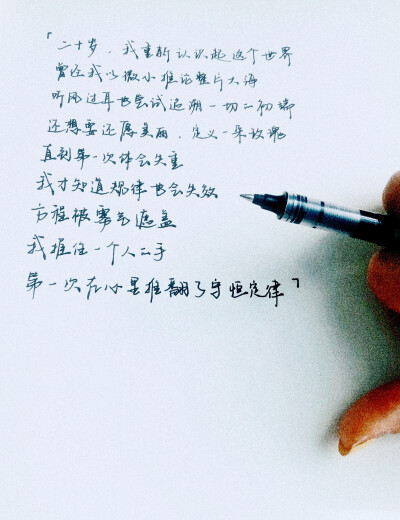 「二十岁，我重新认识起这个世界
曾经我以微小推论整片大海
听风过耳也尝试追溯一切之初端
还想要还原美丽，定义一朵玫瑰
直到第一次体会失重
我才知道规律也会失效
方程被雾气遮盖
我推住一个人之手
第一次在心里推翻了守恒定律」